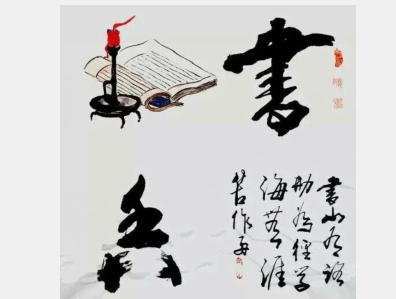 書
香
書山有路
勤為徑學
海無涯
苦作舟